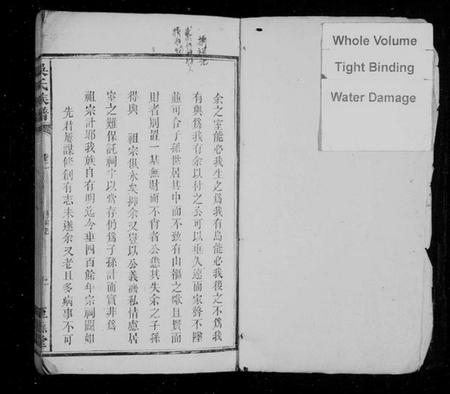 余之室能必我生之爲我有烏能必我後之不爲我
有與爲我有余以付之公可以垂久遠而家聲不墜
並可令子孫世居其中而不致有由禍之歎且賢而
財者別置一基無財而不肖者公恐其失余之子孫
得與 祖宗俱永矣抑余又豈以公義離私情處居
室之難保託祠宇以常存仍爲子孫計而實非爲
祖宗計耶我族自有明迄今垂四百餘年宗祠闕如
先君屢謀修創有志未遂余又老且多病事不可
吳氏族譜
Whole Volume
Tight Binding
Water Damage